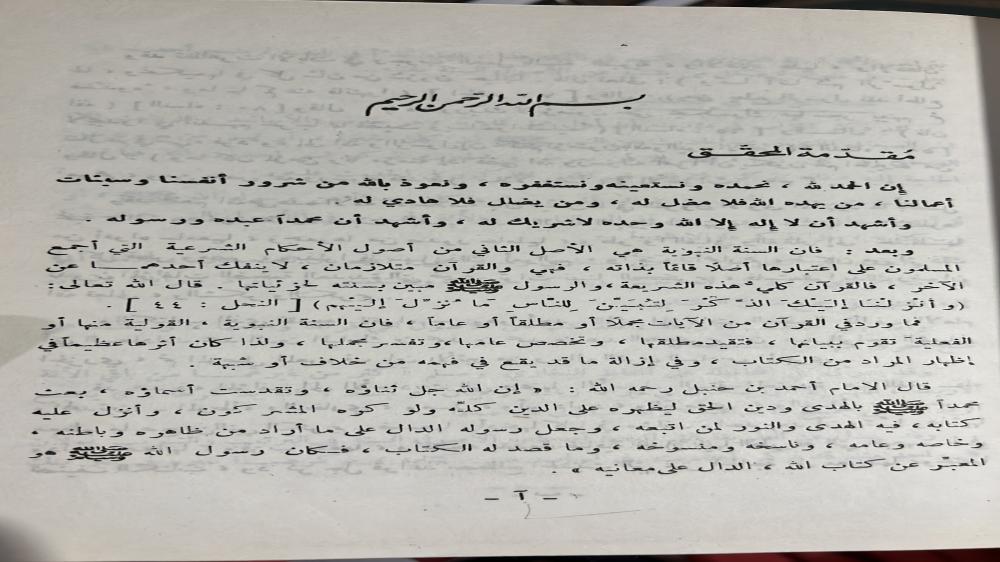 بسم الله الرحمن الرحيم
مُقدّمة المحقّق
إن الحمد لله ، نحمده ونستعينه ونستغفره ، ونعوذ بالله من شرور أنفسنا وسيئات
أعمالنا ، من يهده الله فلا مضل له ، ومن يضلل فلا هادي له .
وأشهد أن لا إله إلا الله وحده لاشريك له ، وأشهد أن محمداً عبده ورسوله .
وبعد : فان السنة النبوية هي الأصل الثاني من أصول الأحكام الشرعية التي أجمع
المسلمون على اعتبارها أصلاً قائماً بذاته ، فهي والقرآن متلازمان ، لاينفك أحدهما عن
الآخر ، فالقرآن كليّ هذه الشريعة ، والرسول ﷺ مبين بسنته لجزئياتها . قال الله تعالى :
( وأنزَلنا إليْكَ الذكْرَ لِتُبَيّنَ لِلنّاسِ مَا نُزِّلَ إليْهِم ) [ النحل : ٤٤ ] .
فما ورد في القرآن من الآيات مجملاً أو مطلقاً أو عاماً ، فان السنة النبوية ، القولية منها أو
الفعلية تقوم ببيانها ، فتقيد مطلقها ، وتخصص عامها ، وتفسر مجملها ، ولذا كان أثرها عظيماً في
إظهار المراد من الكتاب ، وفي إزالة ما قد يقع في فهمه من خلاف أو شبهة .
قال الامام أحمد بن حنبل رحمه الله : « إن الله جل ثناؤه ، وتقدست أسماؤه ، بعث
محمداً ﷺ بالهدى ودين الحق ليظهره على الدين كلّه ولو كره المشركون ، وأنزل عليه
كتابه ، فيه الهدى والنور لمن اتبعه ، وجعل رسوله الدال على ما أراد من ظاهره وباطنه ،
وخاصه وعامه ، وناسخه ومنسوخه ، وما قصد له الكتاب ، فكان رسول الله ﷺ هو
المعبّر عن كتاب الله ، الدال على معانيه » .
– آ –